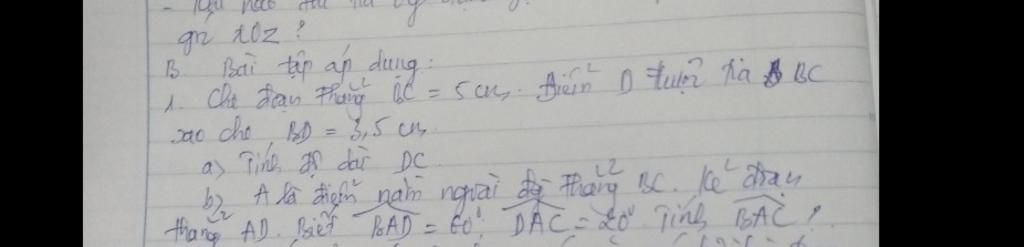 gì xOz ?
B Bài tập áp dụng :
1. Cho đoạn thẳng BC = 5 cm. Điểm D thuộc tia BC
sao cho BD = 3,5 cm
a) Tính độ dài DC
b) A là điểm nằm ngoài đg thẳng BC. Kẻ đoạn
thẳng AD. Biết BAD = 60°. DAC = 20° Tính BAC ?